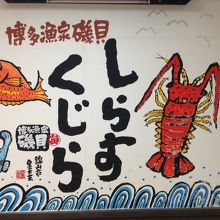 博多漁家磯貝
しらす
くじら
博多漁家
磯貝